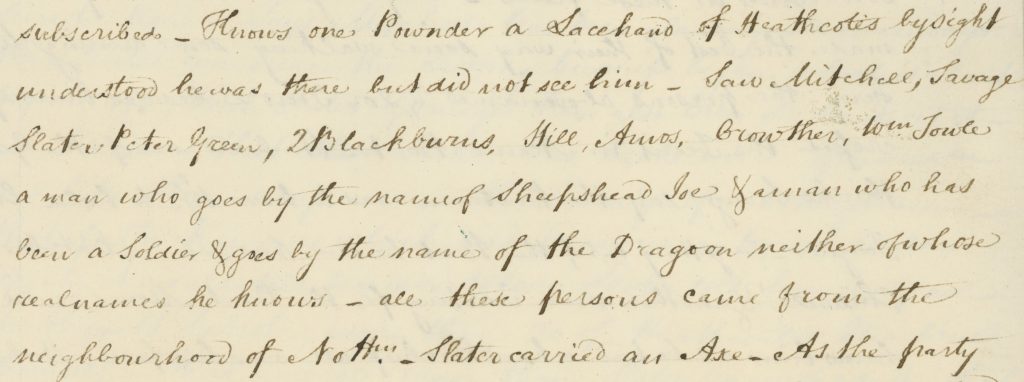 subscribed – Knows one Pownder a Lacehand of Heathcotes by sight
understood he was there but did not see him – Saw Mitchell, Savage
Slater, Peter Green, 2 Blackburns, Hill, Amos, Crowther, Wm Towle
a man who goes by the name of Sheepshead Joe & a man who has
been a Soldier & goes by the name of the Dragoon neither of whose
real names he knows – all these persons came from the
neighbourhood of Nottm. – Slater carried an Axe – As the party